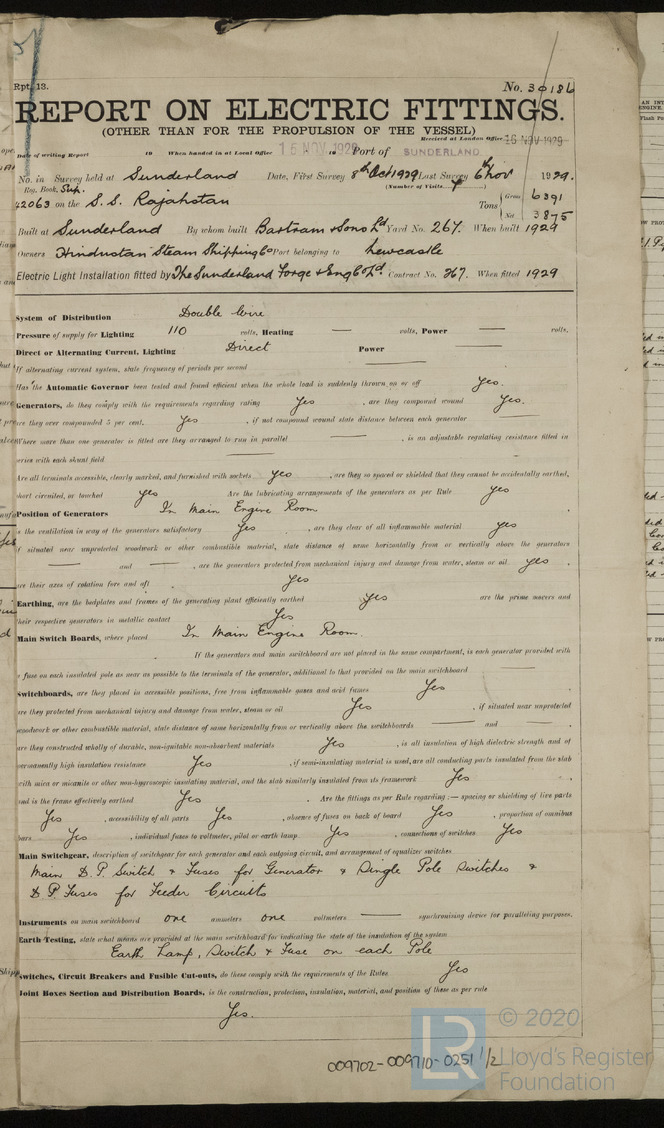 Rpt. 13.
No. 30186
REPORT ON ELECTRIC FITTINGS.
(OTHER THAN FOR THE PROPULSION OF THE VESSEL)
Received at London Office 16 NOV 1929
Date of writing Report 19 When handed in at Local Office 15 NOV. 1929 19 Port of SUNDERLAND
No. in Survey held at Sunderland Date, First Survey 8th Oct 1929 Last Survey 6th Nov 1929.
Reg. Book. Sup. (Number of Visits 7)
42063 on the S.S. Rajahstan Tons Gross 6391 Net 3875
Built at Sunderland By whom built Bartram & Sons Ld Yard No. 267. When built 1929
Owners Hindustan Steam Shipping Co Port belonging to Newcastle
Electric Light Installation fitted by The Sunderland Forge & Eng Co Ld. Contract No. 267. When fitted 1929
System of Distribution Double Wire
Pressure of supply for Lighting 110 volts, Heating — volts, Power — volts.
Direct or Alternating Current, Lighting Direct Power —
If alternating current system, state frequency of periods per second —
Has the Automatic Governor been tested and found efficient when the whole load is suddenly thrown on or off Yes.
Generators, do they comply with the requirements regarding rating Yes , are they compound wound Yes.
are they over compounded 5 per cent. Yes , if not compound wound state distance between each generator —
Where more than one generator is fitted are they arranged to run in parallel — , is an adjustable regulating resistance fitted in
series with each shunt field —
Are all terminals accessible, clearly marked, and furnished with sockets yes , are they so spaced or shielded that they cannot be accidentally earthed,
short circuited, or touched yes Are the lubricating arrangements of the generators as per Rule yes
Position of Generators In Main Engine Room
is the ventilation in way of the generators satisfactory Yes , are they clear of all inflammable material yes
if situated near unprotected woodwork or other combustible material, state distance of same horizontally from or vertically above the generators
— and — , are the generators protected from mechanical injury and damage from water, steam or oil yes .
are their axes of rotation fore and aft Yes
Earthing, are the bedplates and frames of the generating plant efficiently earthed yes are the prime movers and
their respective generators in metallic contact Yes
Main Switch Boards, where placed In Main Engine Room.
If the generators and main switchboard are not placed in the same compartment, is each generator provided with
a fuse on each insulated pole as near as possible to the terminals of the generator, additional to that provided on the main switchboard —
Switchboards, are they placed in accessible positions, free from inflammable gases and acid fumes Yes .
are they protected from mechanical injury and damage from water, steam or oil Yes , if situated near unprotected
woodwork or other combustible material, state distance of same horizontally from or vertically above the switchboards — and — .
are they constructed wholly of durable, non-ignitable non-absorbent materials Yes , is all insulation of high dielectric strength and of
permanently high insulation resistance Yes , if semi-insulating material is used, are all conducting parts insulated from the slab
with mica or micanite or other non-hygroscopic insulating material, and the slab similarly insulated from its framework Yes .
and is the frame effectively earthed Yes . Are the fittings as per Rule regarding:— spacing or shielding of live parts
Yes , accessibility of all parts Yes , absence of fuses on back of board Yes , proportion of omnibus
bars Yes , individual fuses to voltmeter, pilot or earth lamp Yes , connections of switches Yes
Main Switchgear, description of switchgear for each generator and each outgoing circuit, and arrangement of equalizer switches
Main D.P. Switch & Fuses for Generator & Single Pole Switches &
D.P. Fuses for Feeder Circuits
Instruments on main switchboard one ammeters one voltmeters — synchronising device for paralleling purposes.
Earth Testing, state what means are provided at the main switchboard for indicating the state of the insulation of the system
Earth Lamp, Switch & Fuse on each Pole
Switches, Circuit Breakers and Fusible Cut-outs, do these comply with the requirements of the Rules Yes
Joint Boxes Section and Distribution Boards, is the construction, protection, insulation, material, and position of these as per rule
Yes.
009702-009710-0251 1/2
© 2020
Lloyd's Register
Foundation